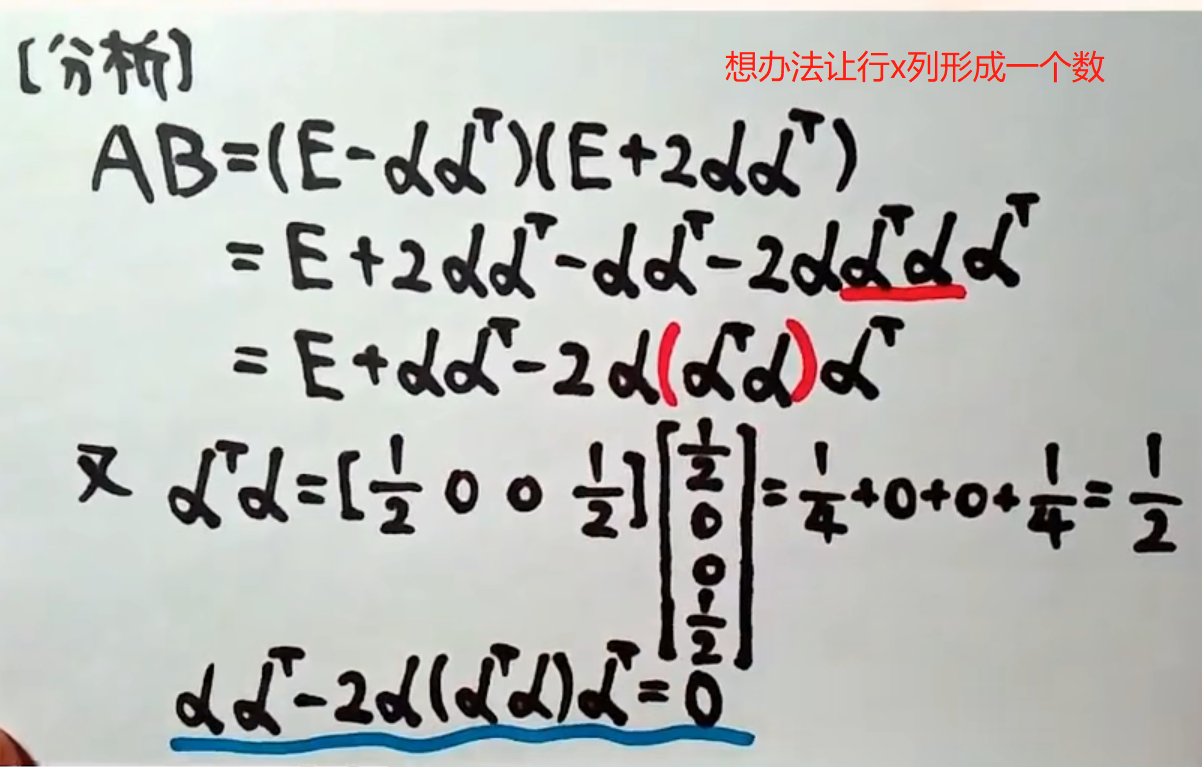 [分析]
想办法让行x列形成一个数
AB=(E-αα^T)(E+2αα^T)
=E+2αα^T-αα^T-2αα^Tαα^T
=E+αα^T-2α(α^Tα)α^T
又 α^Tα=[1/2 0 0 1/2][1/2 0 0 1/2]=1/4+0+0+1/4=1/2
αα^T-2α(α^Tα)α^T=0